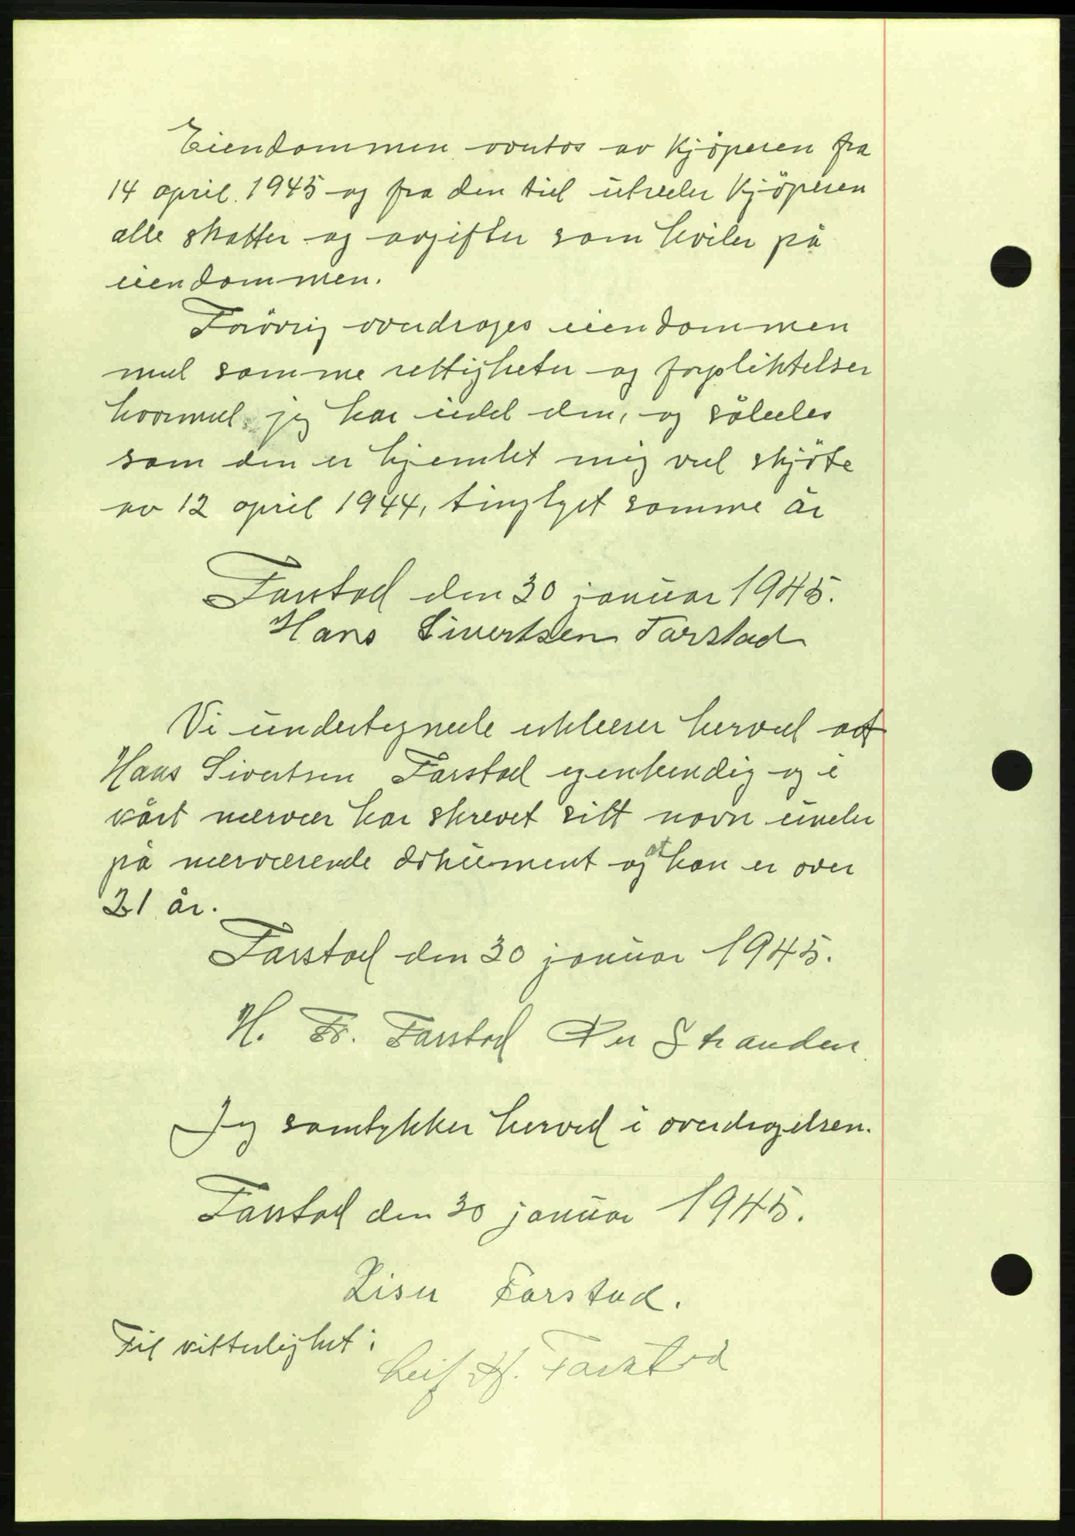 Eiendommen overtas av kjöperen fra
14 april 1945 og fra den tid utreder kjöperen
alle skatter og avgifter som hviler på
eiendommen.
Forövrig overdrages eiendommen
med samme rettigheter og forpliktelser
hvormed jeg har eiet den, og således
som den er hjemlet mig ved skjöte
av 12 april 1944, tinglyst samme år
Farstad den 30 januar 1945.
Hans Sivertsen Farstad
Vi undertegnede erklærer herved at
Hans Sivertsen Farstad egenhendig og i
vårt nærvær har skrevet sitt navn under
på nærværende dokument og at han er over
21 år.
Farstad den 30 januar 1945.
H. Fr. Farstad Per Stranden
Jeg samtykker herved i overdragelsen.
Farstad den 30 januar 1945.
Farstad.
Til vitterlighet:
Leif H. Farstad